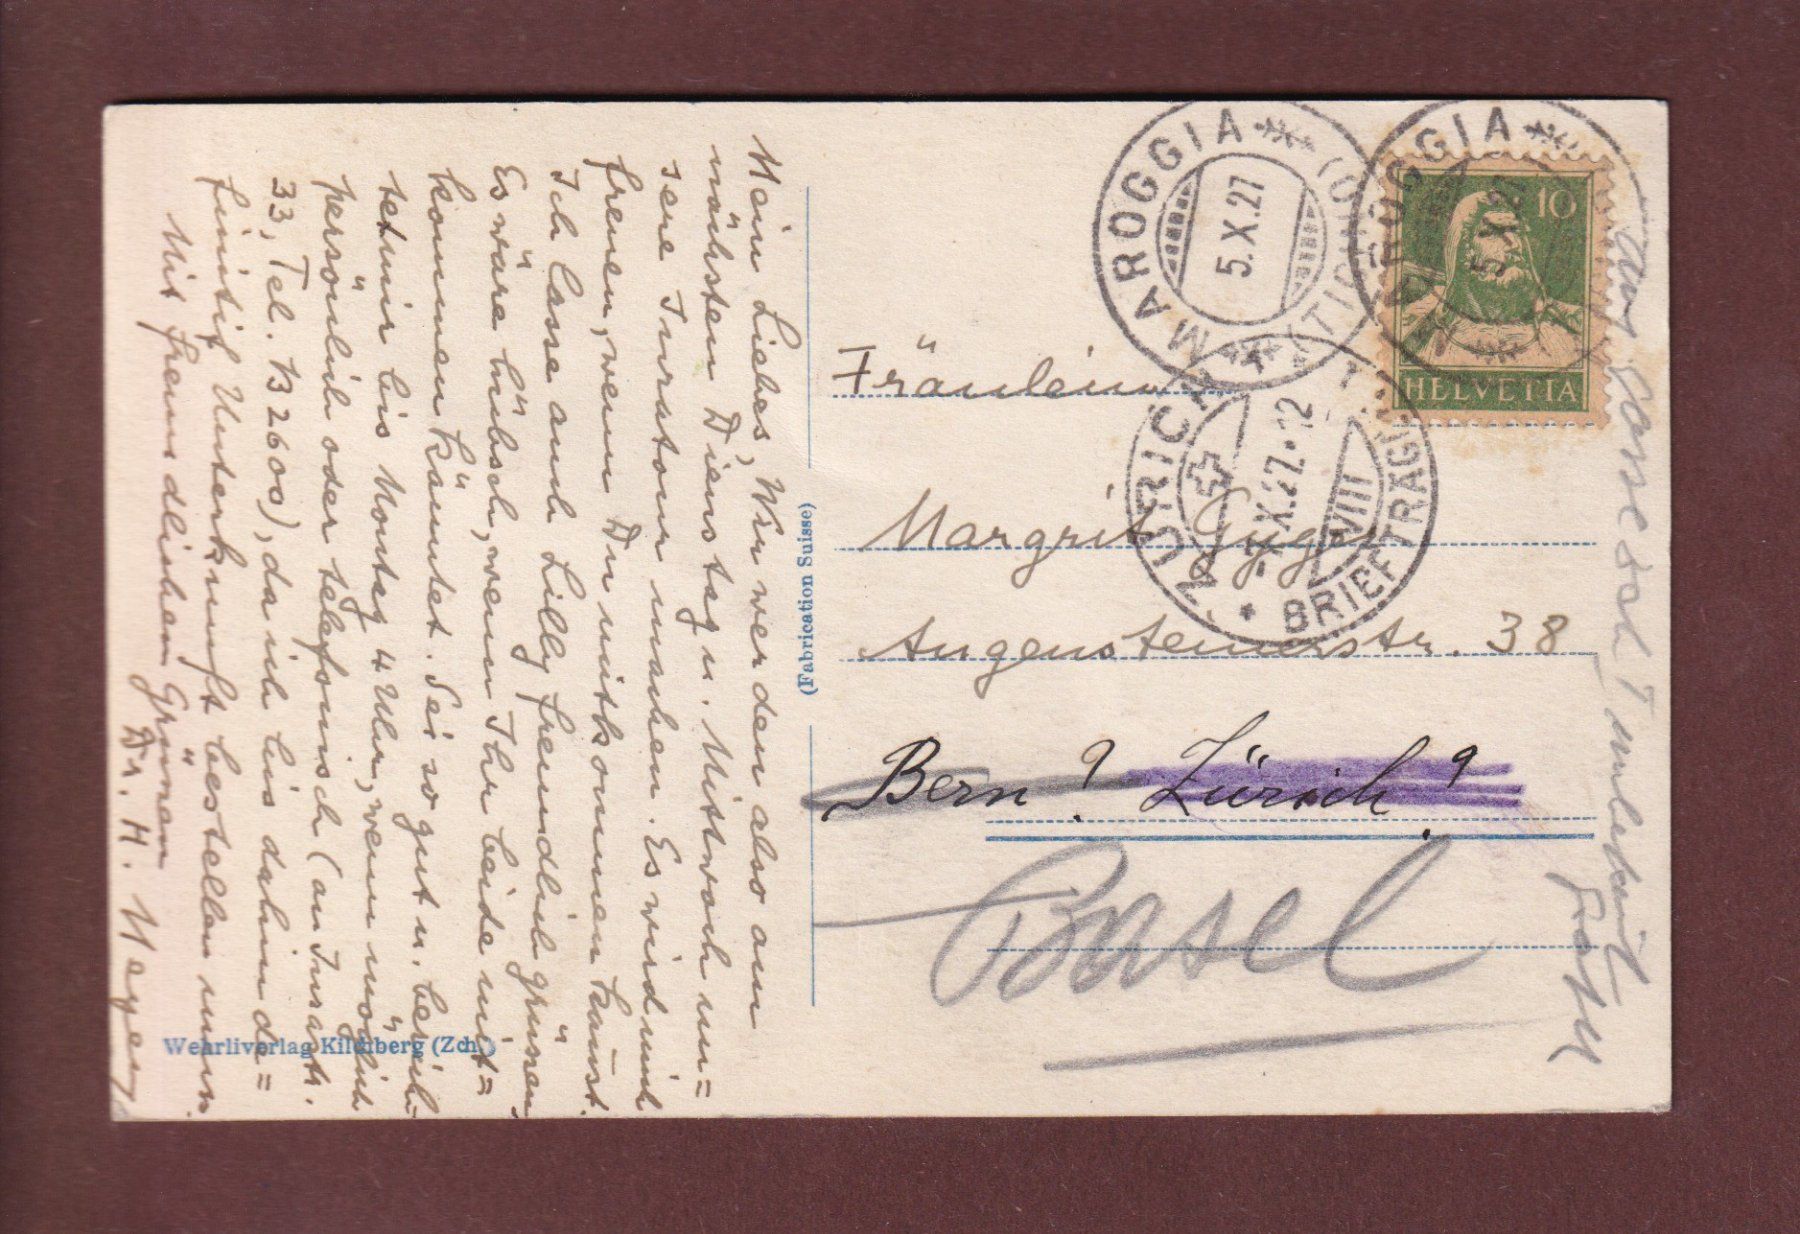 Mein Liebes, Wir werden also am
nächsten Dienstag u. Mittwoch un=
sere Juratour machen. Es wird mich
freuen, wenn Du mitkommen kannst.
Ich lasse auch Lilly freundlich grüssen.
Es wäre hübsch, wenn Ihr beide mit=
kommen könntet. Sei so gut u. berich=
tet mir bis Montag 4 Uhr, wenn möglich
persönlich oder telefonisch (
33, Tel. B 2600), da ich bis dahin de=
finitif Unterkunft bestellen muss.
Mit freundlichen Grüssen
Dr. H. Mayer
Wehrliverlag Kilchberg (Zch.)
(Fabrication Suisse)
MAROGGIA (TICINO)
5.X.27
MAROGGIA
5.X.27
10
HELVETIA
ZÜRICH
7.X.27.12
VIII
BRIEFTRÄGER
Fräulein
Margrit Gygi
Augensteinerstr. 38
Bern? Zürich?
Basel